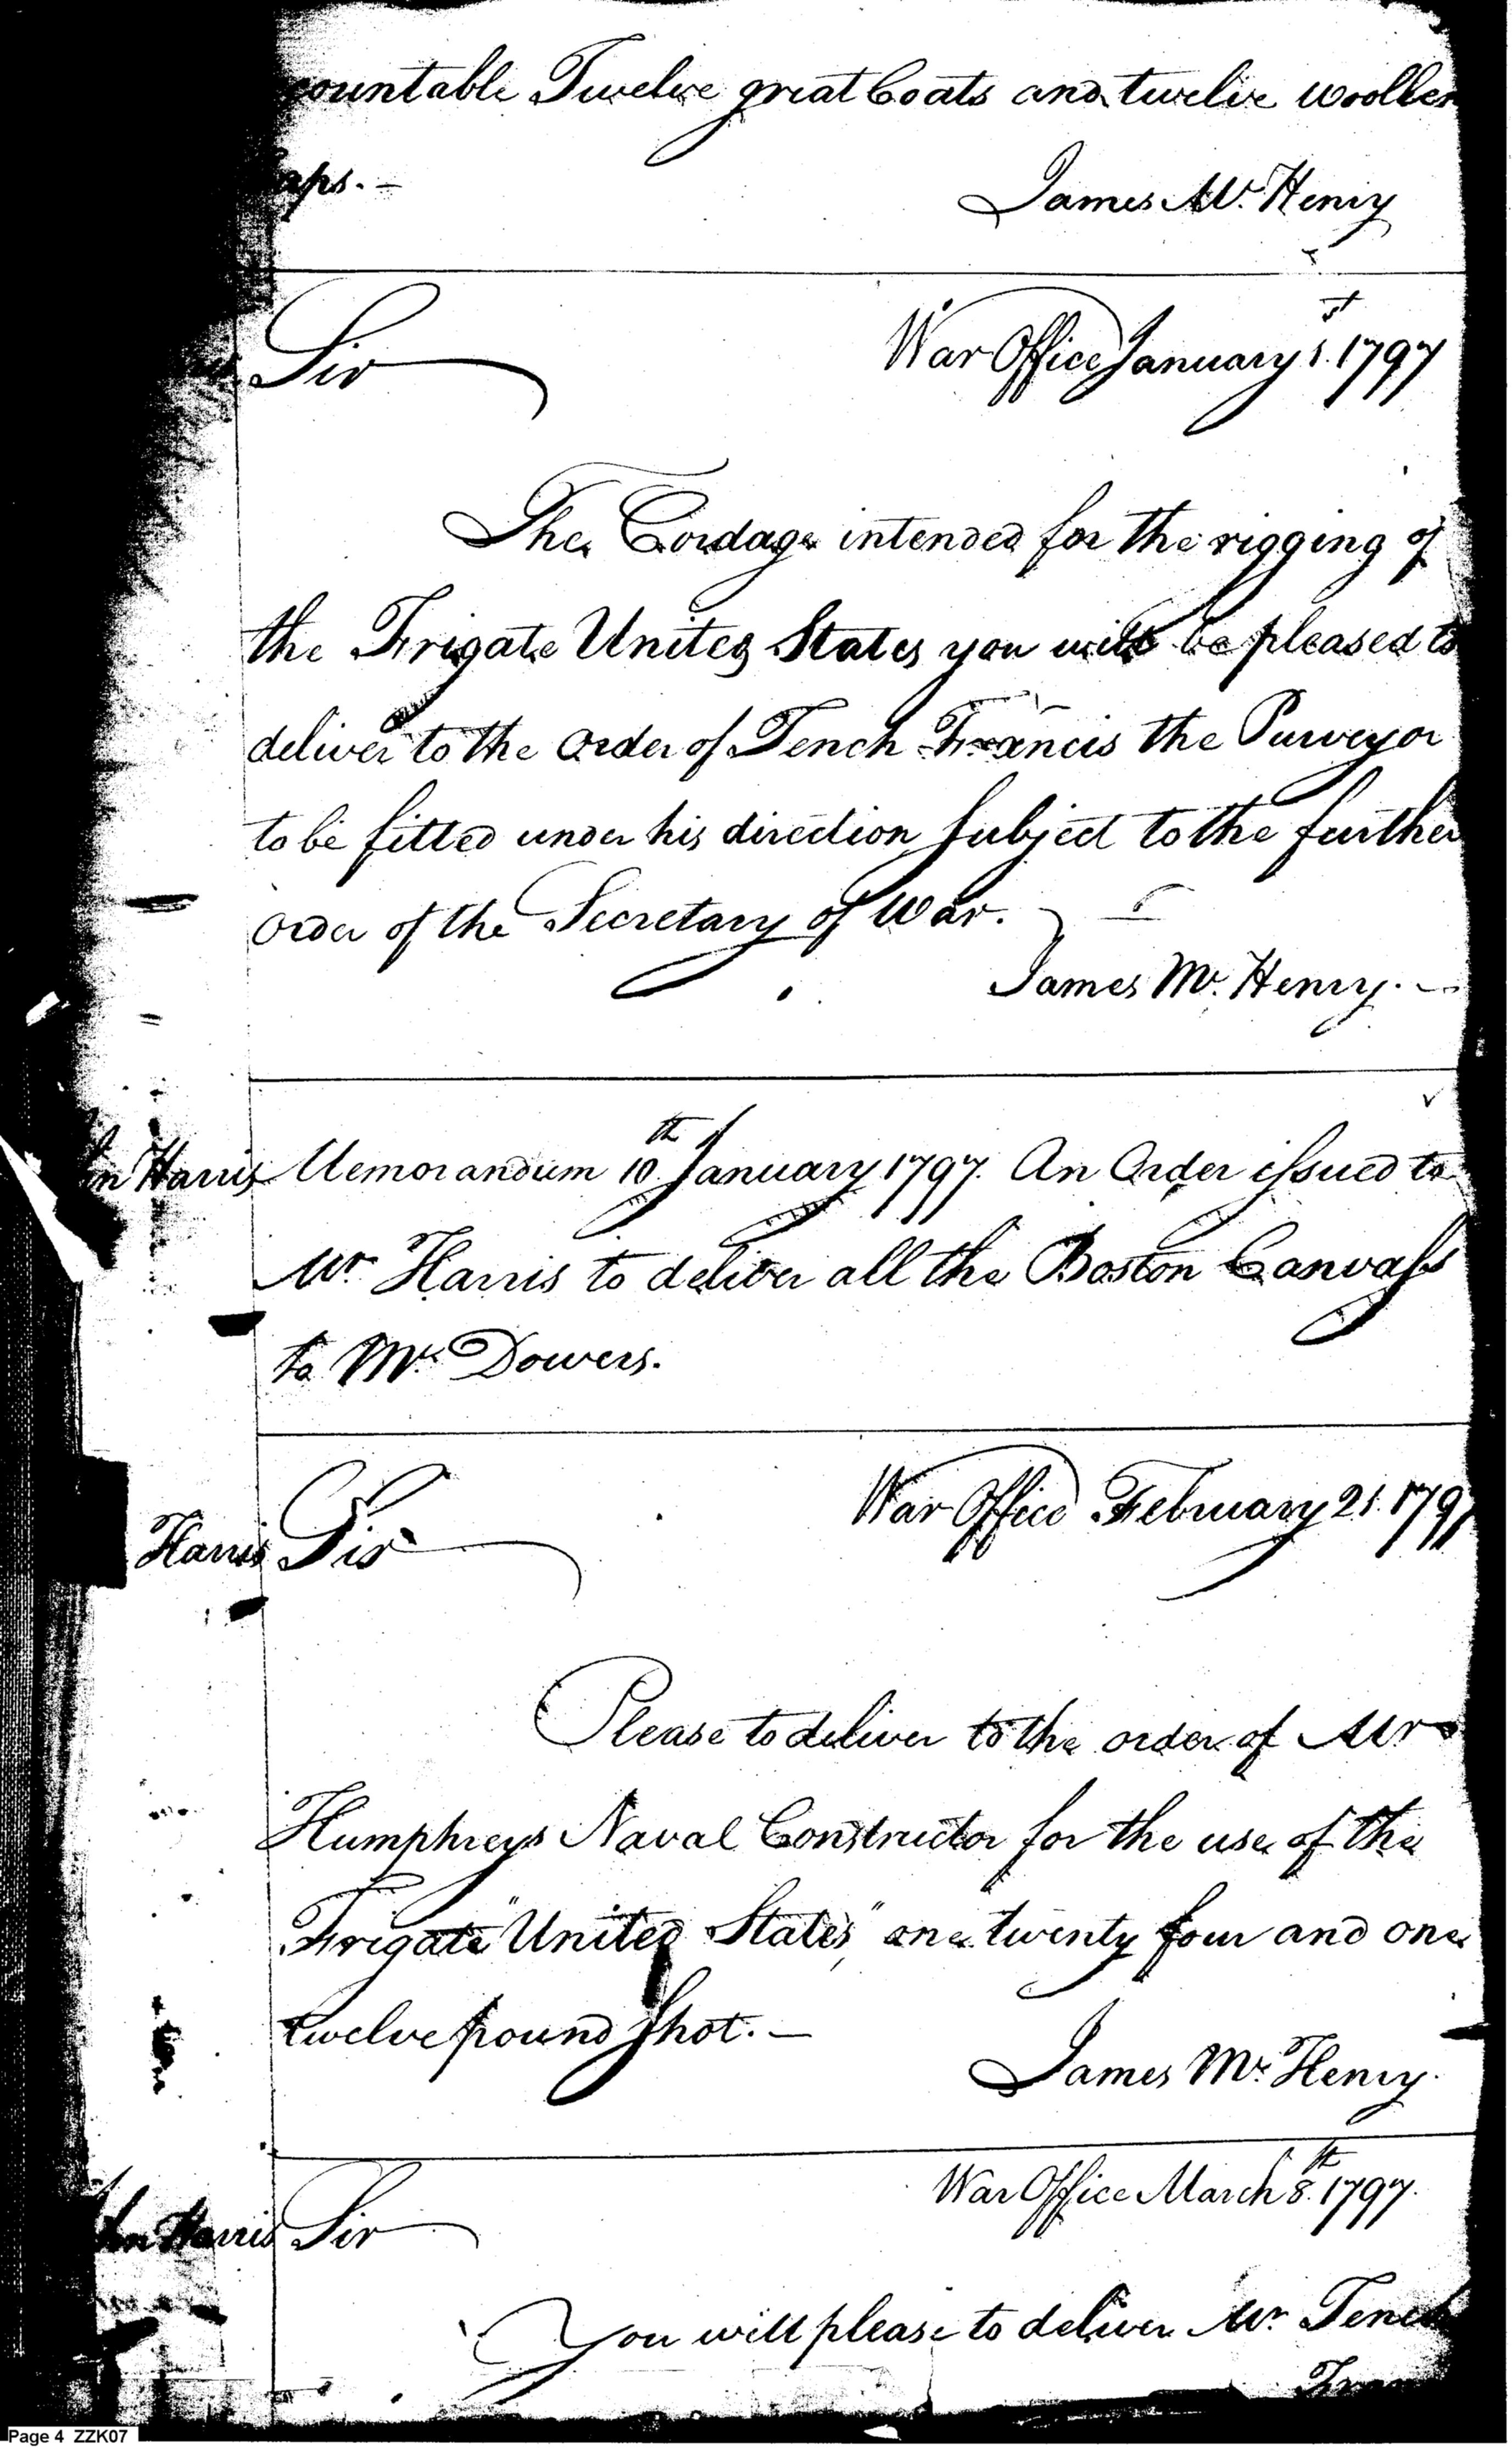 countable Twelve great Coats and twelve woollen
aps. —
James Mc. Henry
Sir
War Office January 1st. 1797
The Cordage intended for the rigging of
the Frigate United States you will be pleased to
deliver to the order of Tench Francis the Purveyor
to be fitted under his direction Subject to the further
order of the Secretary of War.
James Mc. Henry. —
n Harris
Memorandum 10th. January 1797. An Order issued to
Mr. Harris to deliver all the Boston Canvass
to Mr. Dowers.
War Office February 21. 1797
Harris
Sir
Please to deliver to the order of Mr
Humphreys Naval Constructor for the use of the
Frigate "United States" one twenty four and one
twelve pound Shot. —
James Mc. Henry.
War Office March 8th. 1797.
hn Harris
Sir
You will please to deliver Mr. Tench
Fran
Page 4 ZZK07